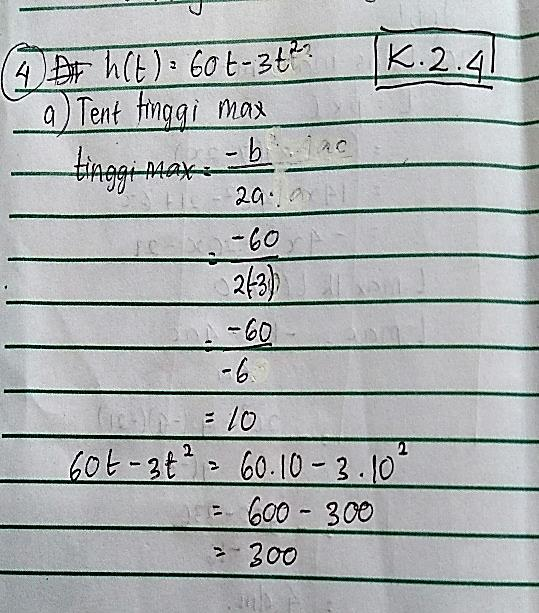 4) h(t) = 60t - 3t²
K.2.4
a) Tent tinggi max
tinggi max = -b
2a
= -60
2(-3)
= -60
-6
= 10
60t - 3t² = 60.10 - 3.10²
= 600 - 300
= 300